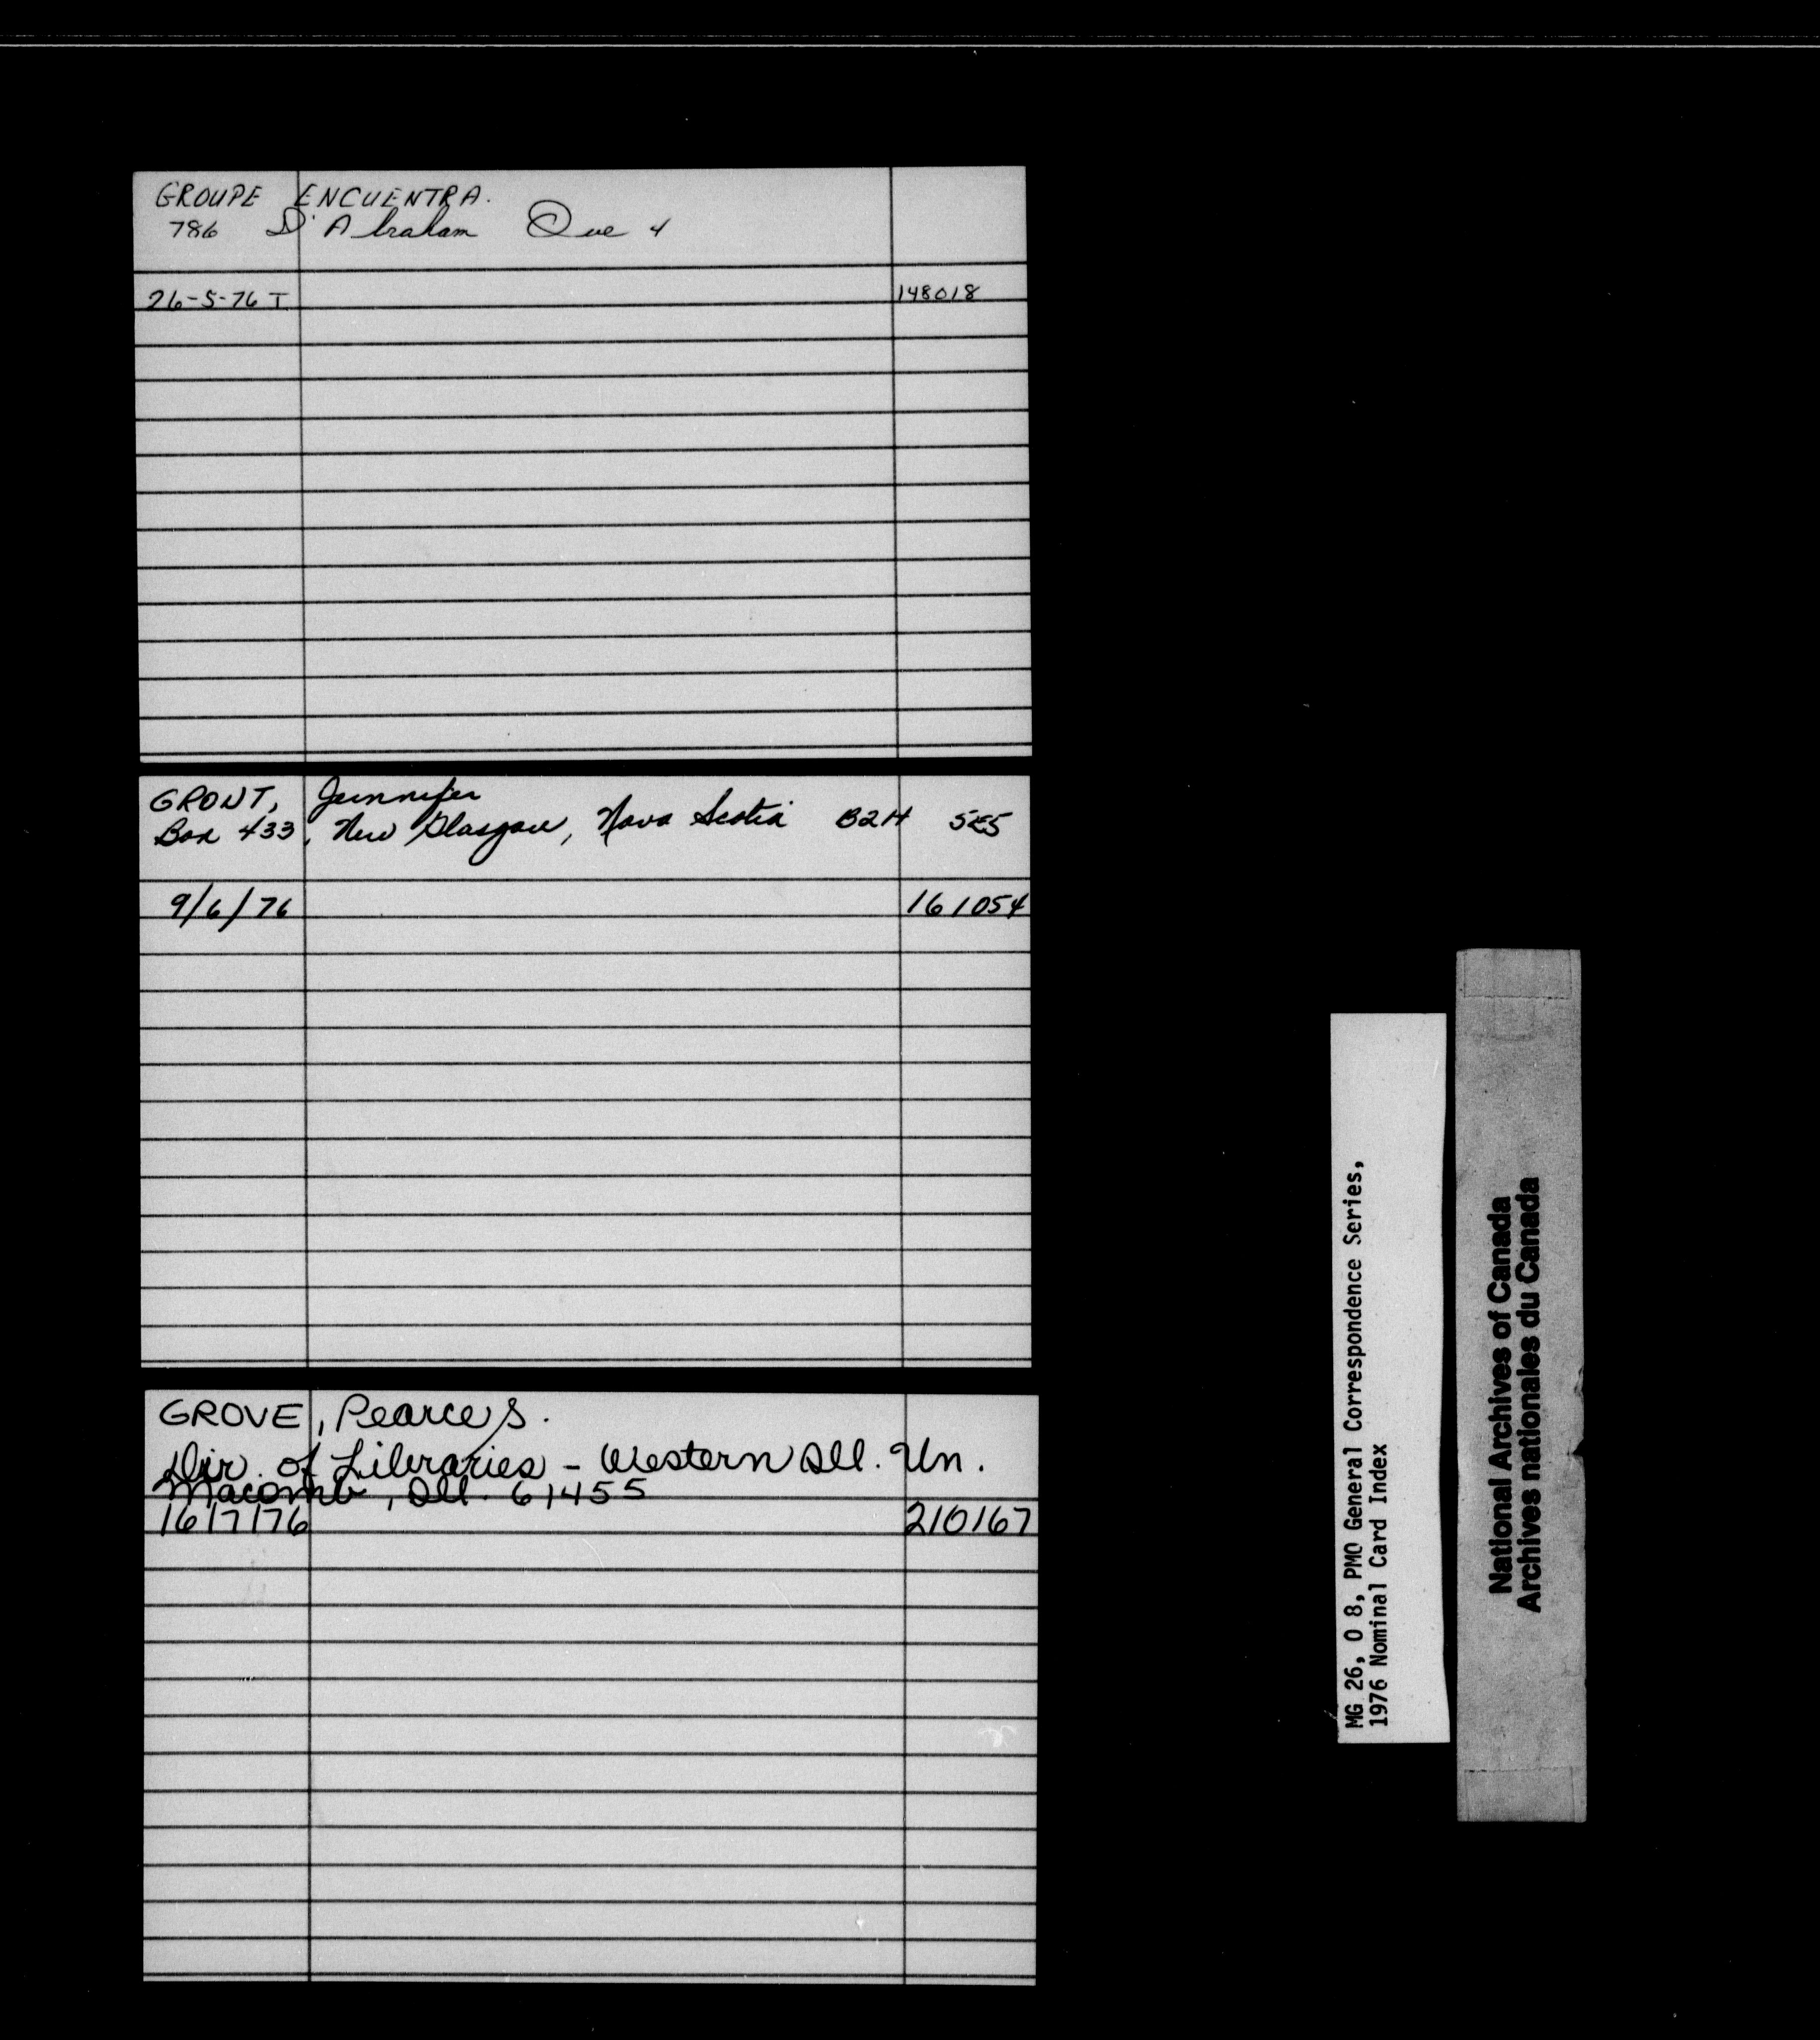 GROUPE ENCUENTRA.
786 D'Abraham Que 4
26-5-76 T 148018
GRONT, Jennifer
Box 433, New Glasgow, Nova Scotia B2H 5E5
9/6/76 161054
GROVE, Pearce S.
Dir. of Libraries - Western Ill. Un.
Macomb, Ill. 61455
16/7/76 210167
MG 26, O 8, PMO General Correspondence Series,
1976 Nominal Card Index
National Archives of Canada
Archives nationales du Canada